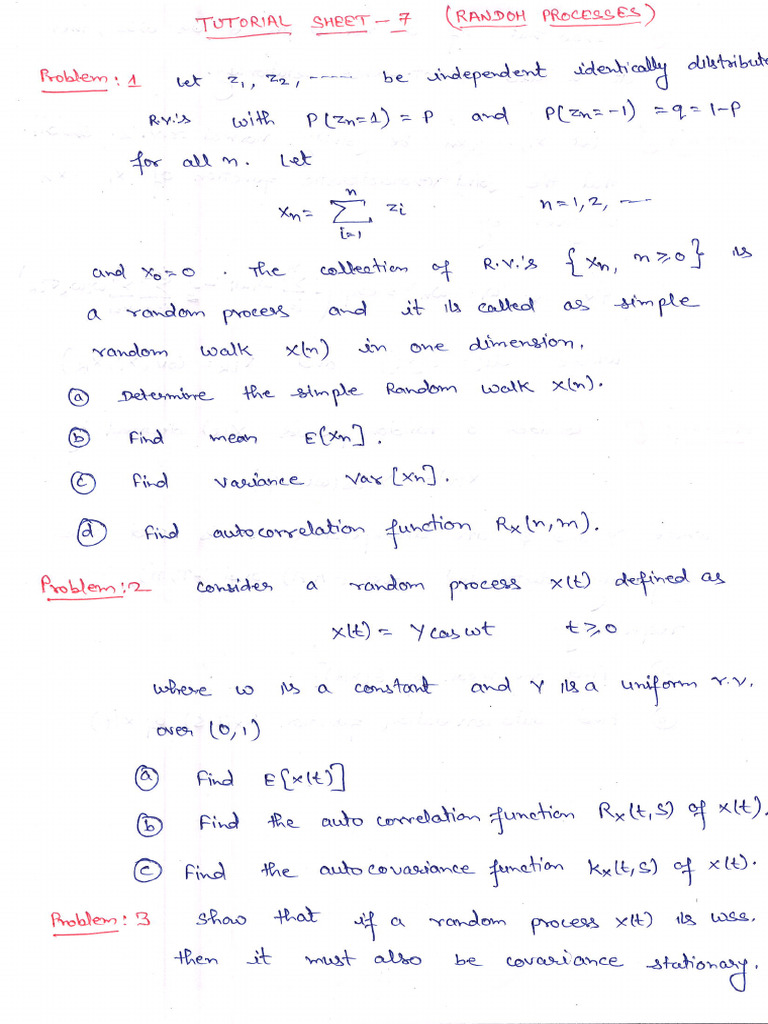 TUTORIAL SHEET - 7 (RANDOM PROCESSES)
Problem: 1 Let Z1, Z2, ----- be independent identically distribute
R.V.'s with P(Zn=1) = P and P(Zn=-1) = q = 1-P
for all n. Let
Xn = Σ_{i=1}^{n} Zi n=1,2, ----
and X0=0 . The collection of R.V.'s {Xn, n≥0} is
a random process and it is called as simple
random walk X(n) in one dimension.
(a) Determine the simple Random walk X(n).
(b) Find mean E[Xn].
(c) Find variance Var[Xn].
(d) Find autocorrelation function Rx(n,m).
Problem: 2 consider a random process X(t) defined as
X(t) = Y cos wt t≥0
where w is a constant and Y is a uniform r.v.
over (0,1)
(a) Find E[X(t)]
(b) Find the auto correlation function Rx(t,s) of X(t).
(c) Find the autocovariance function Kx(t,s) of X(t).
Problem: 3 Show that if a random process X(t) is WSS.
then it must also be covariance stationary.